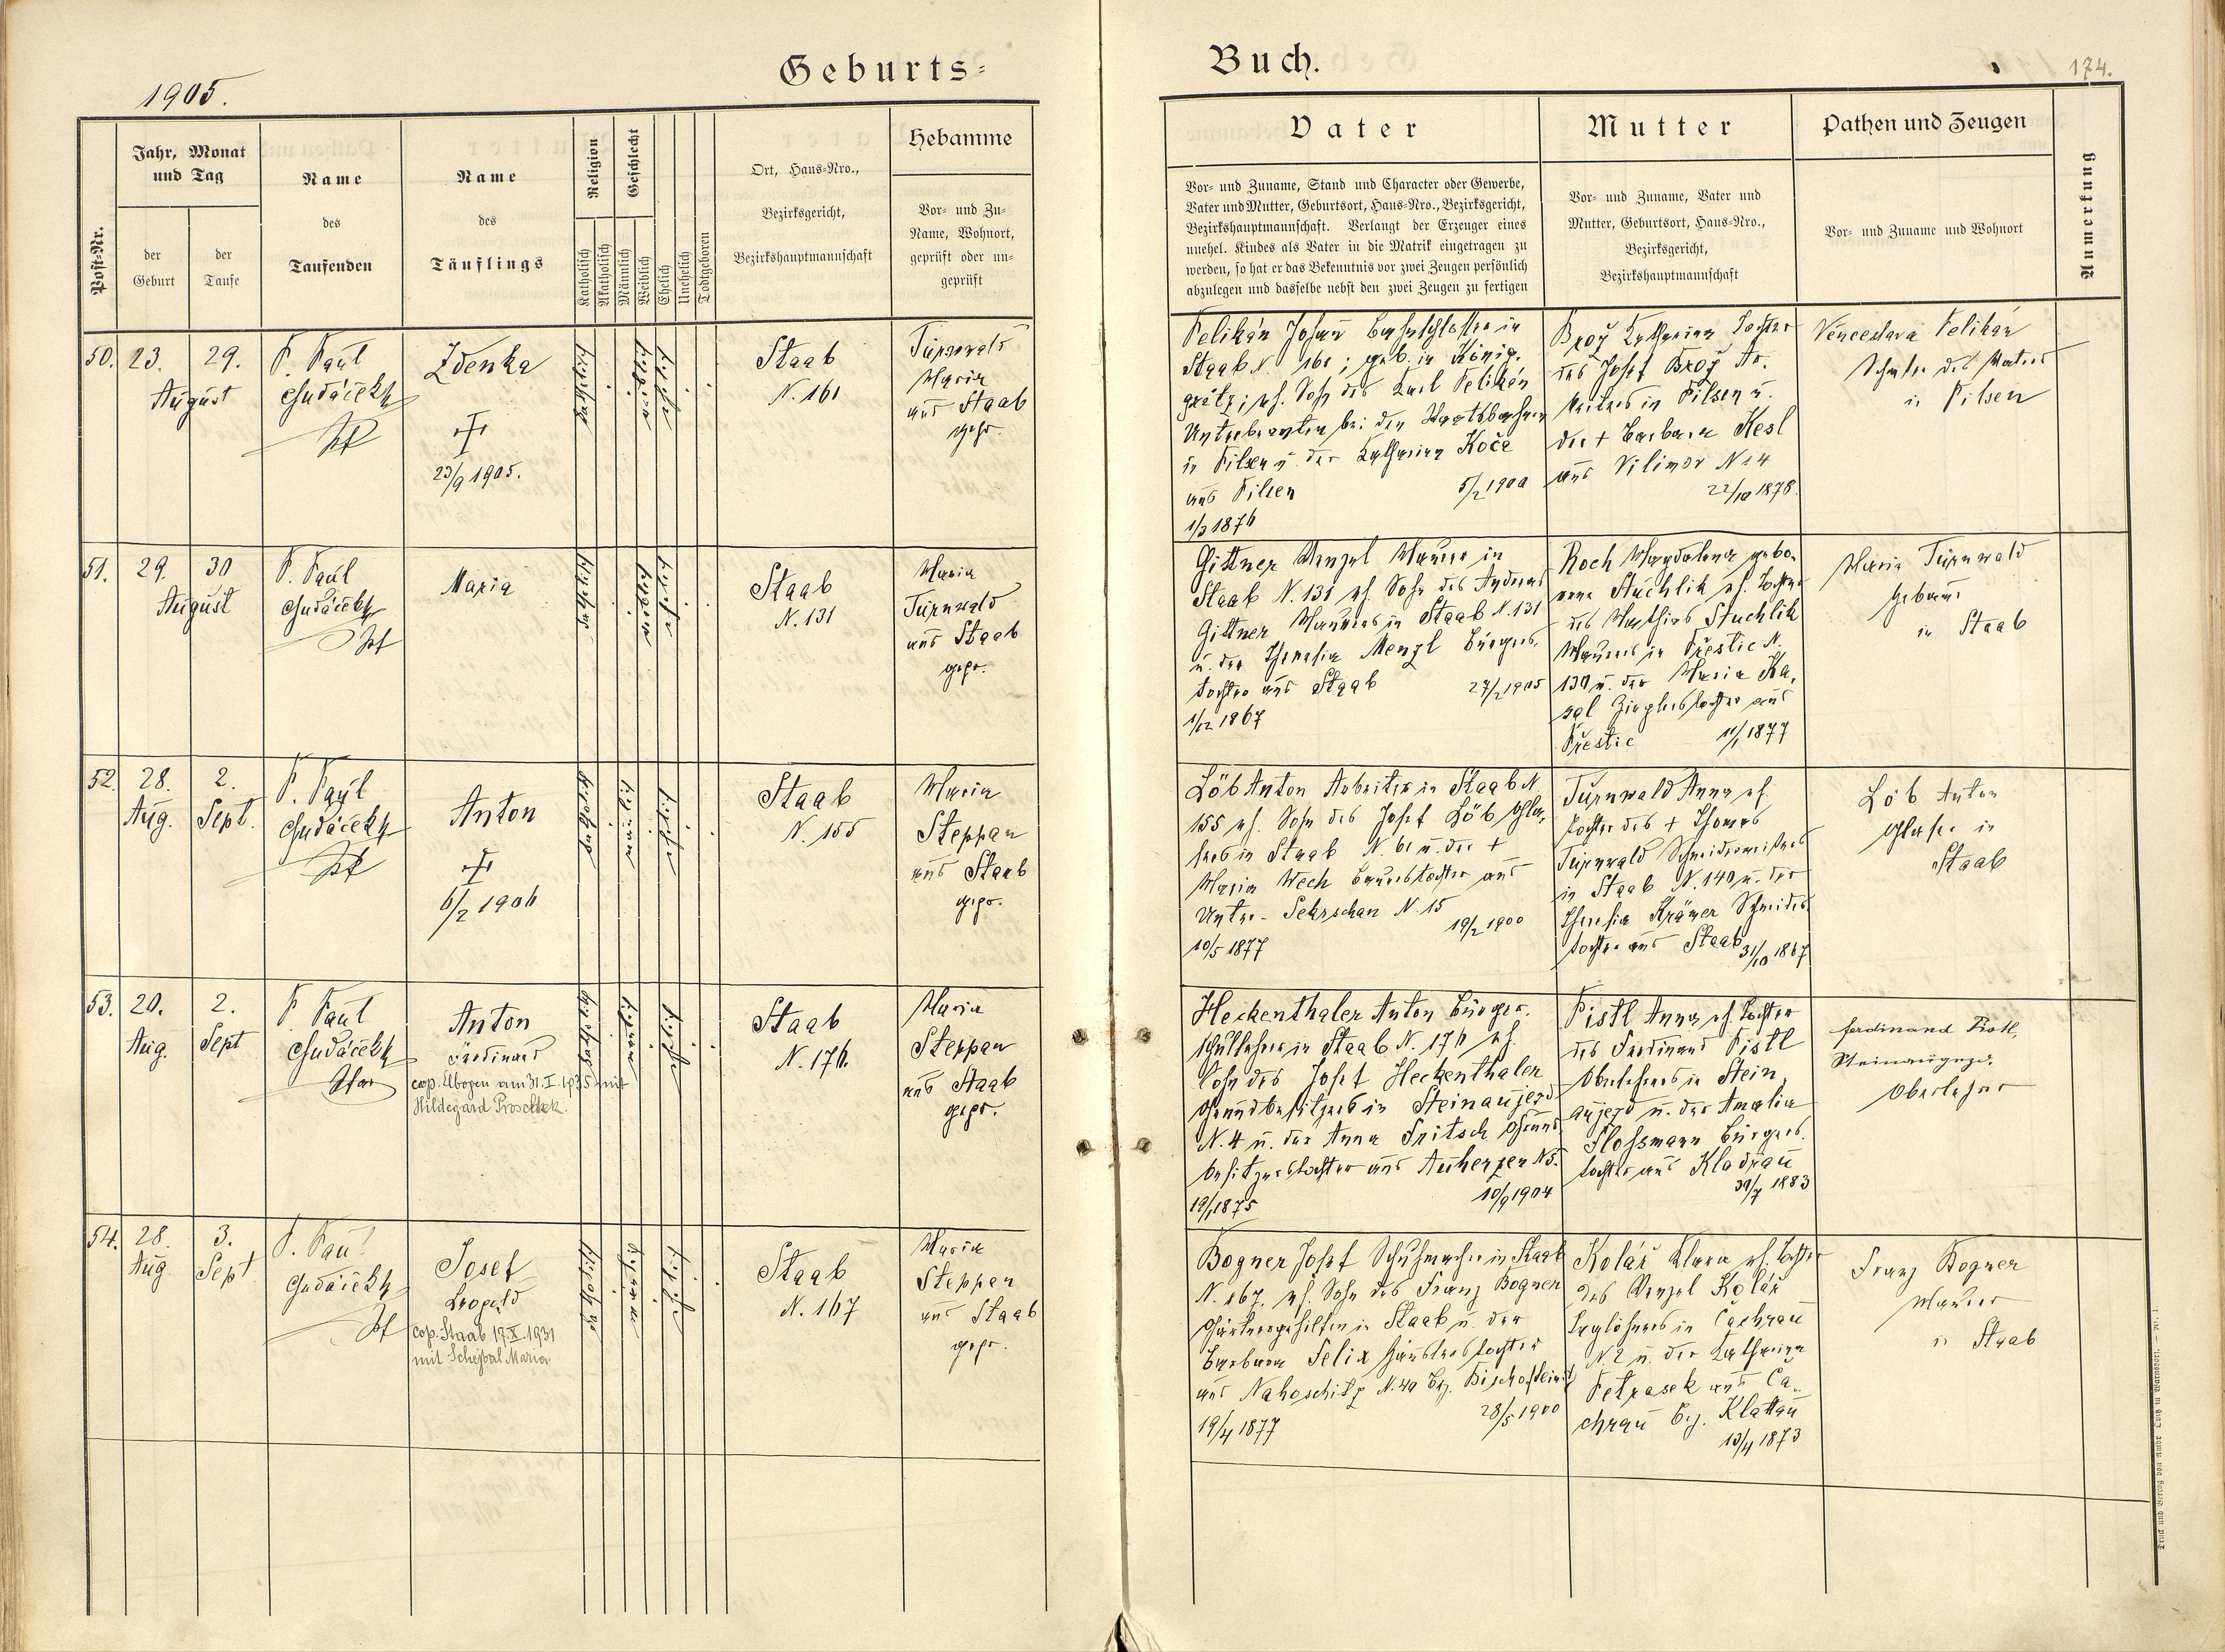 Geburts=
1905.
Post-Nr.
Jahr, Monat
und Tag
der
Geburt
der
Taufe
Name
des
Taufenden
Name
des
Täuflings
Religion
Katholisch
Akatholisch
Geschlecht
Männlich
Weiblich
Ehelich
Unehelich
Todtgeboren
Ort, Haus-Nro.,
Bezirksgericht,
Bezirkshauptmannschaft
Hebamme
Vor- und Zu-
Name, Wohnort,
geprüft oder un-
geprüft
50. 23. 29.
August
P. Paul
Zdenka
23/9 1905.
Staab
N. 161
Turnwald
Maria
aus Staab
gepr.
51. 29. 30
August
P. Paul
Maria
Staab
N. 131
Maria
Turnwald
aus Staab
gepr.
52. 28. 2.
Aug. Sept.
P. Paul
Anton
6/2 1906
Staab
N. 155
Maria
Steppan
aus Staab
gepr.
53. 20. 2.
Aug. Sept
P. Paul
Anton
Ferdinand
cop. Elbogen am 31. I. 1935 mit
Hildegard Proschek.
Staab
N. 176.
Maria
Steppan
aus Staab
gepr.
54. 28. 3.
Aug. Sept
P. Paul
Josef
Leopold
cop. Staab 17. X. 1931
mit Scheybal Maria
Staab
N. 167
Maria
Steppan
aus Staab
gepr.
Buch.
174.
Vater
Vor- und Zuname, Stand und Character oder Gewerbe,
Vater und Mutter, Geburtsort, Haus-Nro., Bezirksgericht,
Bezirkshauptmannschaft. Verlangt der Erzeuger eines
unehel. Kindes als Vater in die Matrik eingetragen zu
werden, so hat er das Bekenntnis vor zwei Zeugen persönlich
abzulegen und dasselbe nebst den zwei Zeugen zu fertigen
Mutter
Vor- und Zuname, Vater und
Mutter, Geburtsort, Haus-Nro.,
Bezirksgericht,
Bezirkshauptmannschaft
Pathen und Zeugen
Vor- und Zuname und Wohnort
Anmerkung
Pelikán Johann Bahnschlosser in
Staab N. 161; geb. in König-
grätz; eh. Sohn des Karl Pelikán
Unterbeamten bei den Staatsbahnen
in Pilsen u. der Katharina Koče
aus Pilsen 5/2 1900
1/3 1876
Brož Katharina Tochter
des Josef Brož Ar-
beiters in Pilsen u.
der + Barbara Kesl
aus Vilimov N 14
22/10 1878.
Venceslava Pelikán
Schwester des Vaters
in Pilsen
Gittner Wenzel Maurer in
Staab N. 131 eh. Sohn des Andreas
Gittner Maurers in Staab N. 131
u. der Theresia Menzl Bürgers-
tochter aus Staab 27/2 1905
1/12 1867
Koch Magdalena gebo-
rene Stuchlik eh. Tochter
des Mathias Stuchlik
Maurers in Přestic N.
130 u. der Maria Ka-
sal Zieglerstochter aus
Přestic 11/1 1877
Maria Turnwald
Hebamme
in Staab
Löb Anton Arbeiter in Staab N
155 eh. Sohn des Josef Löb Gla-
sers in Staab N. 61 u. der +
Maria Wech Bauerstochter aus
Unter-Sekrschan N. 15
19/2 1900
10/5 1877
Turnwald Anna eh.
Tochter des + Thomas
Turnwald Schneidermeisters
in Staab N. 140 u. der
Theresia Krämer Schneiders
tochter aus Staab 31/10 1867
Löb Anton
Glaser in
Staab
Heckenthaler Anton Bürger-
schullehrer in Staab N. 176 eh.
Sohn des Josef Heckenthaler
Grundbesitzers in Steinaujezd
N. 4 u. der Anna Fritsch Grund-
besitzerstochter aus Auherzen N 5.
10/9 1904
19/1 1875
Pistl Anna eh. Tochter
des Ferdinand Pistl
Oberlehrers in Stein-
aujezd u. der Amalia
Flossmann Bürgers-
tochter aus Kladrau
30/7 1883
Ferdinand Pistl,
Steinaujezd.
Oberlehrer
Bogner Josef Schuhmacher in Staab
N. 167. eh. Sohn des Franz Bogner
Gärtnergehilfen in Staab u. der
Barbara Selix Häuslerstochter
aus Nahoschitz N. 40 Bez. Bischofteinitz
28/5 1900
19/4 1877
Kolář Klara eh. Tochter
des Wenzel Kolář
Taglöhners in Čachrau
N. 2 u. der Katharina
Petrasek aus Ča-
chrau Bez. Klattau
13/4 1873
Franz Bogner
Maurer
in Staab